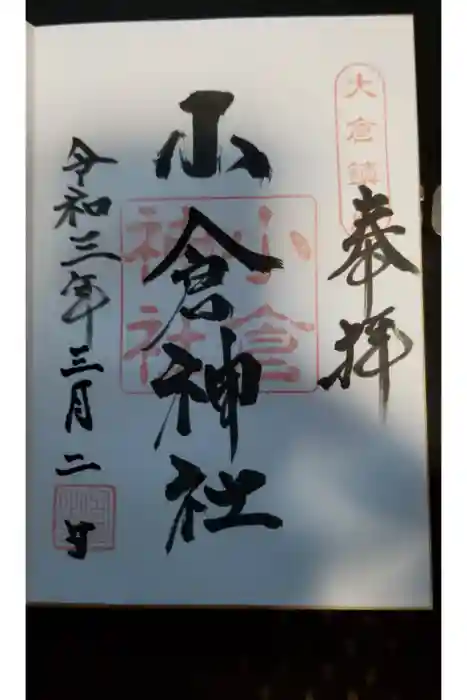 大倉鎮
奉拝
小倉神社
小倉
神社
令和三年三月二日